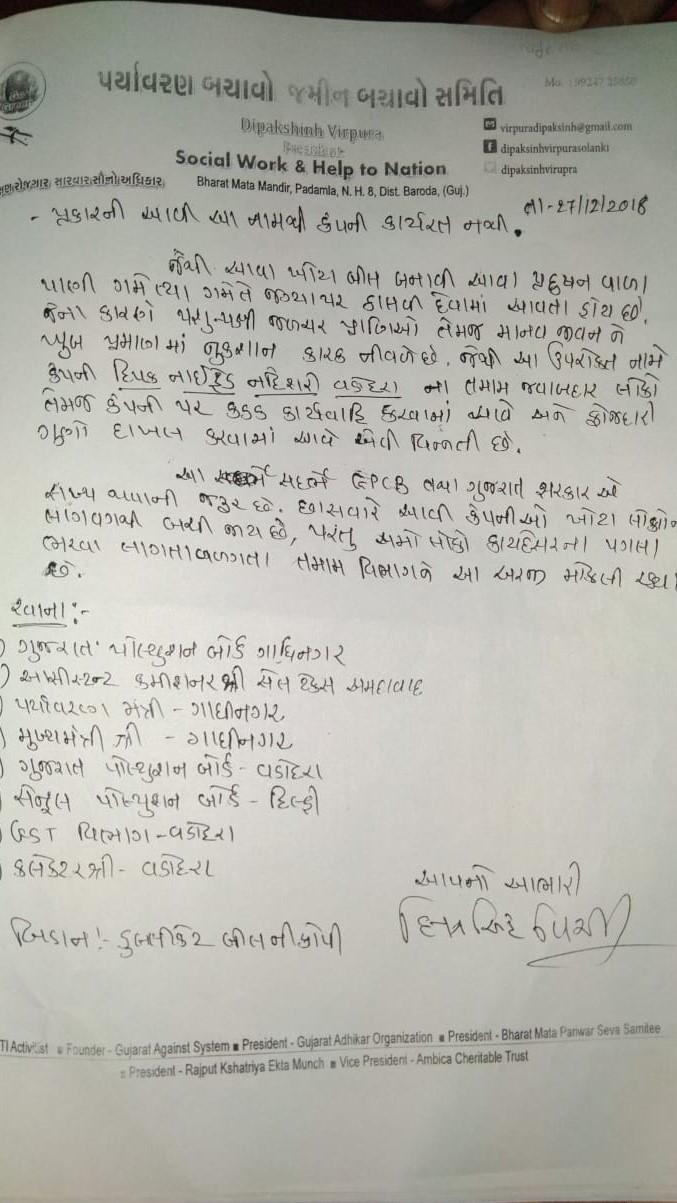 Mo. : 99247 25850
પર્યાવરણ બચાવો જમીન બચાવો સમિતિ
Dipakshinh Virpura
President
virpuradipaksinh@gmail.com
dipaksinhvirpurasolanki
Social Work & Help to Nation
dipaksinhvirupra
રોજગાર સારવાર સૌનો અધિકાર
Bharat Mata Mandir, Padamla, N. H. 8, Dist. Baroda, (Guj.)
તા-27/12/2018
- પ્રકારની આવી આ નામથી કંપની કાર્યરત નથી.
જેથી આવા ખોટા બીલ બનાવી આવા પ્રદુષન વાળા
પાણી ગમે ત્યા ગમે તે જગ્યા પર ઠાલવી દેવામાં આવતા હોય છે.
જેના કારણે પશુ-પક્ષી જળચર પ્રાણિઓ તેમજ માનવ જીવન ને
ખુબ પ્રમાણ માં નુકશાન કારક નીવળે છે. જેથી આ ઉપરોક્ત નામે
કંપની દિપક નાઈટ્રેડ નદેશરી વડોદરા ના તમામ જવાબદાર લોકો
તેમજ કંપની પર કડક કાર્યવાહિ કરવામાં આવે અને ફોજદારી
ગુણો દાખલ કરવામાં આવે એવી વિનતી છે.
આ સદર્ભે GPCB તથા ગુજરાત સરકાર એ
સખ્ય થવાની જરૂર છે. છાસવારે આવી કંપનીઓ ખોટા લોકો
લાગવગથી બચી જાય છે, પરંતુ અમો લોકો કાયદેસરના પગલા
ભરવા લાગતાવળગતા તમામ વિભાગને આ અરજી મોકલી રહ્યા
છે.
રવાના:-
) ગુજરાત પોલ્યુશન બોર્ડ ગાધિનગર
) આસીસ્ટન્ટ કમીશનર શ્રી સેલ ટેક્સ અમદાવાદ
) પર્યાવરણ મંત્રી - ગાધીનગર
) મુખ્યમંત્રી શ્રી - ગાધીનગર
) ગુજરાત પોલ્યુશન બોર્ડ - વડોદરા
) સેન્ટ્રલ પોલ્યુશન બોર્ડ - દિલ્હી
) GST વિભાગ - વડોદરા
) કલેકટર શ્રી - વડોદરા
આપનો આભારી
બિડાન :- ડુબલીકેટ બીલ ની કોપી
TI Activist ■ Founder - Gujarat Against System ■ President - Gujarat Adhikar Organization ■ President - Bharat Mata Pariwar Seva Samitee
■ President - Rajput Kshatriya Ekta Munch ■ Vice President - Ambica Cheritable Trust